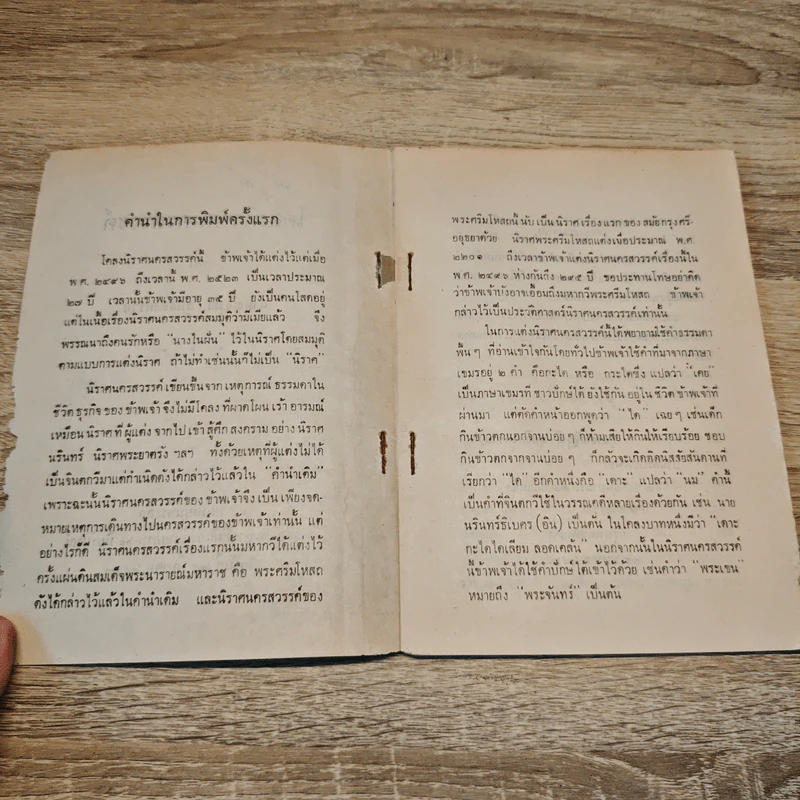 คำนำในการพิมพ์ครั้งแรก
โคลงนิราศนครสวรรค์นี้ ข้าพเจ้าได้แต่งไว้แต่เมื่อ
พ.ศ. ๒๔๙๖ ถึงเวลานี้ พ.ศ. ๒๕๒๓ เป็นเวลาประมาณ
๒๗ ปี เวลานั้นข้าพเจ้ามีอายุ ๓๕ ปี ยังเป็นคนโสดอยู่
แต่ในเนื้อเรื่องนิราศนครสวรรค์สมมุติว่ามีเมียแล้ว จึง
พรรณนาถึงคนรักหรือ “นางในฝัน” ไว้ในนิราศโดยสมมุติ
ตามแบบการแต่งนิราศ ถ้าไม่ทำเช่นนั้นก็ไม่เป็น “นิราศ”
นิราศนครสวรรค์ เขียนขึ้นจาก เหตุการณ์ ธรรมดาใน
ชีวิต ธุรกิจ ของ ข้าพเจ้า จึงไม่มีโคลง ที่ผาดโผน เร้า อารมณ์
เหมือน นิราศ ที่ ผู้แต่ง จากไป เข้า สู้ศึก สงคราม อย่าง นิราศ
นรินทร์ นิราศพระยาตรัง ฯลฯ ทั้งด้วยเหตุที่ผู้แต่งไม่ได้
เป็นจินตกวีมาแต่กำเนิดดังได้กล่าวไว้แล้วใน “คำนำเดิม”
เพราะฉะนั้นนิราศนครสวรรค์ ของ ข้าพเจ้าจึง เป็น เพียงจด-
หมายเหตุการเดินทางไปนครสวรรค์ของข้าพเจ้าเท่านั้น แต่
อย่างไรก็ดี นิราศนครสวรรค์เรื่องแรกนั้นมหากวีได้แต่งไว้
ครั้งแผ่นดินสมเด็จพระนารายณ์มหาราช คือ พระศรีมโหสถ
ดังได้กล่าวไว้แล้วในคำนำเดิม และนิราศนครสวรรค์ของ
พระศรีมโหสถนี้ นับ เป็น นิราศ เรื่อง แรก ของ สมัย กรุง ศรี-
อยุธยาด้วย นิราศพระศรีมโหสถแต่งเมื่อประมาณ พ.ศ.
๒๒๐๑ ถึงเวลาข้าพเจ้าแต่งนิราศนครสวรรค์เรื่องนี้ใน
พ.ศ. ๒๔๙๖ ห่างกันถึง ๒๙๕ ปี ขอประทานโทษอย่าคิด
ว่าข้าพเจ้าบังอาจเอื้อมถึงมหากวีพระศรีมโหสถ ข้าพเจ้า
กล่าวไว้เป็นประวัติศาสตร์นิราศนครสวรรค์เท่านั้น
ในการแต่งนิราศนครสวรรค์นี้ได้พยายามใช้คำธรรมดา
พื้น ๆ ที่อ่านเข้าใจกันโดยทั่วไปข้าพเจ้าใช้คำที่มาจากภาษา
เขมรอยู่ ๒ คำ คือกะได หรือ กระไดซึ่ง แปลว่า “เตย”
เป็นภาษาเขมรที่ ชาวปักษ์ใต้ ยังใช้กัน อยู่ใน ชีวิต ข้าพเจ้าที่
ผ่านมา แต่ตัดคำหน้าออกพูดว่า “ได” เฉย ๆ เช่นเด็ก
กินข้าวตกนอกจานบ่อย ๆ ก็ห้ามเสียให้กินให้เรียบร้อย ชอบ
กินข้าวตกจากจานบ่อย ๆ ก็กลัวจะเกิดติดนิสัยสันดานที่
เรียกว่า “ได” อีกคำหนึ่งคือ “เดาะ” แปลว่า “นม” คำนี้
เป็นคำที่จินตกวีใช้ในวรรณคดีหลายเรื่องด้วยกัน เช่น นาย
นรินทร์ธิเบศร (อิน) เป็นต้น ในโคลงบาทหนึ่งมีว่า “เดาะ
กะไดไดเลียม ลอดเคล้น” นอกจากนั้นในนิราศนครสวรรค์
นี้ข้าพเจ้าได้ใช้คำปักษ์ใต้เข้าไว้ด้วย เช่นคำว่า “พระเขน”
หมายถึง “พระจันทร์” เป็นต้น